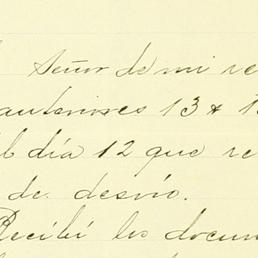 Señor de mi re
anteriores 13 & 1
l día 12 que re
de desvío.
Recibí los docum